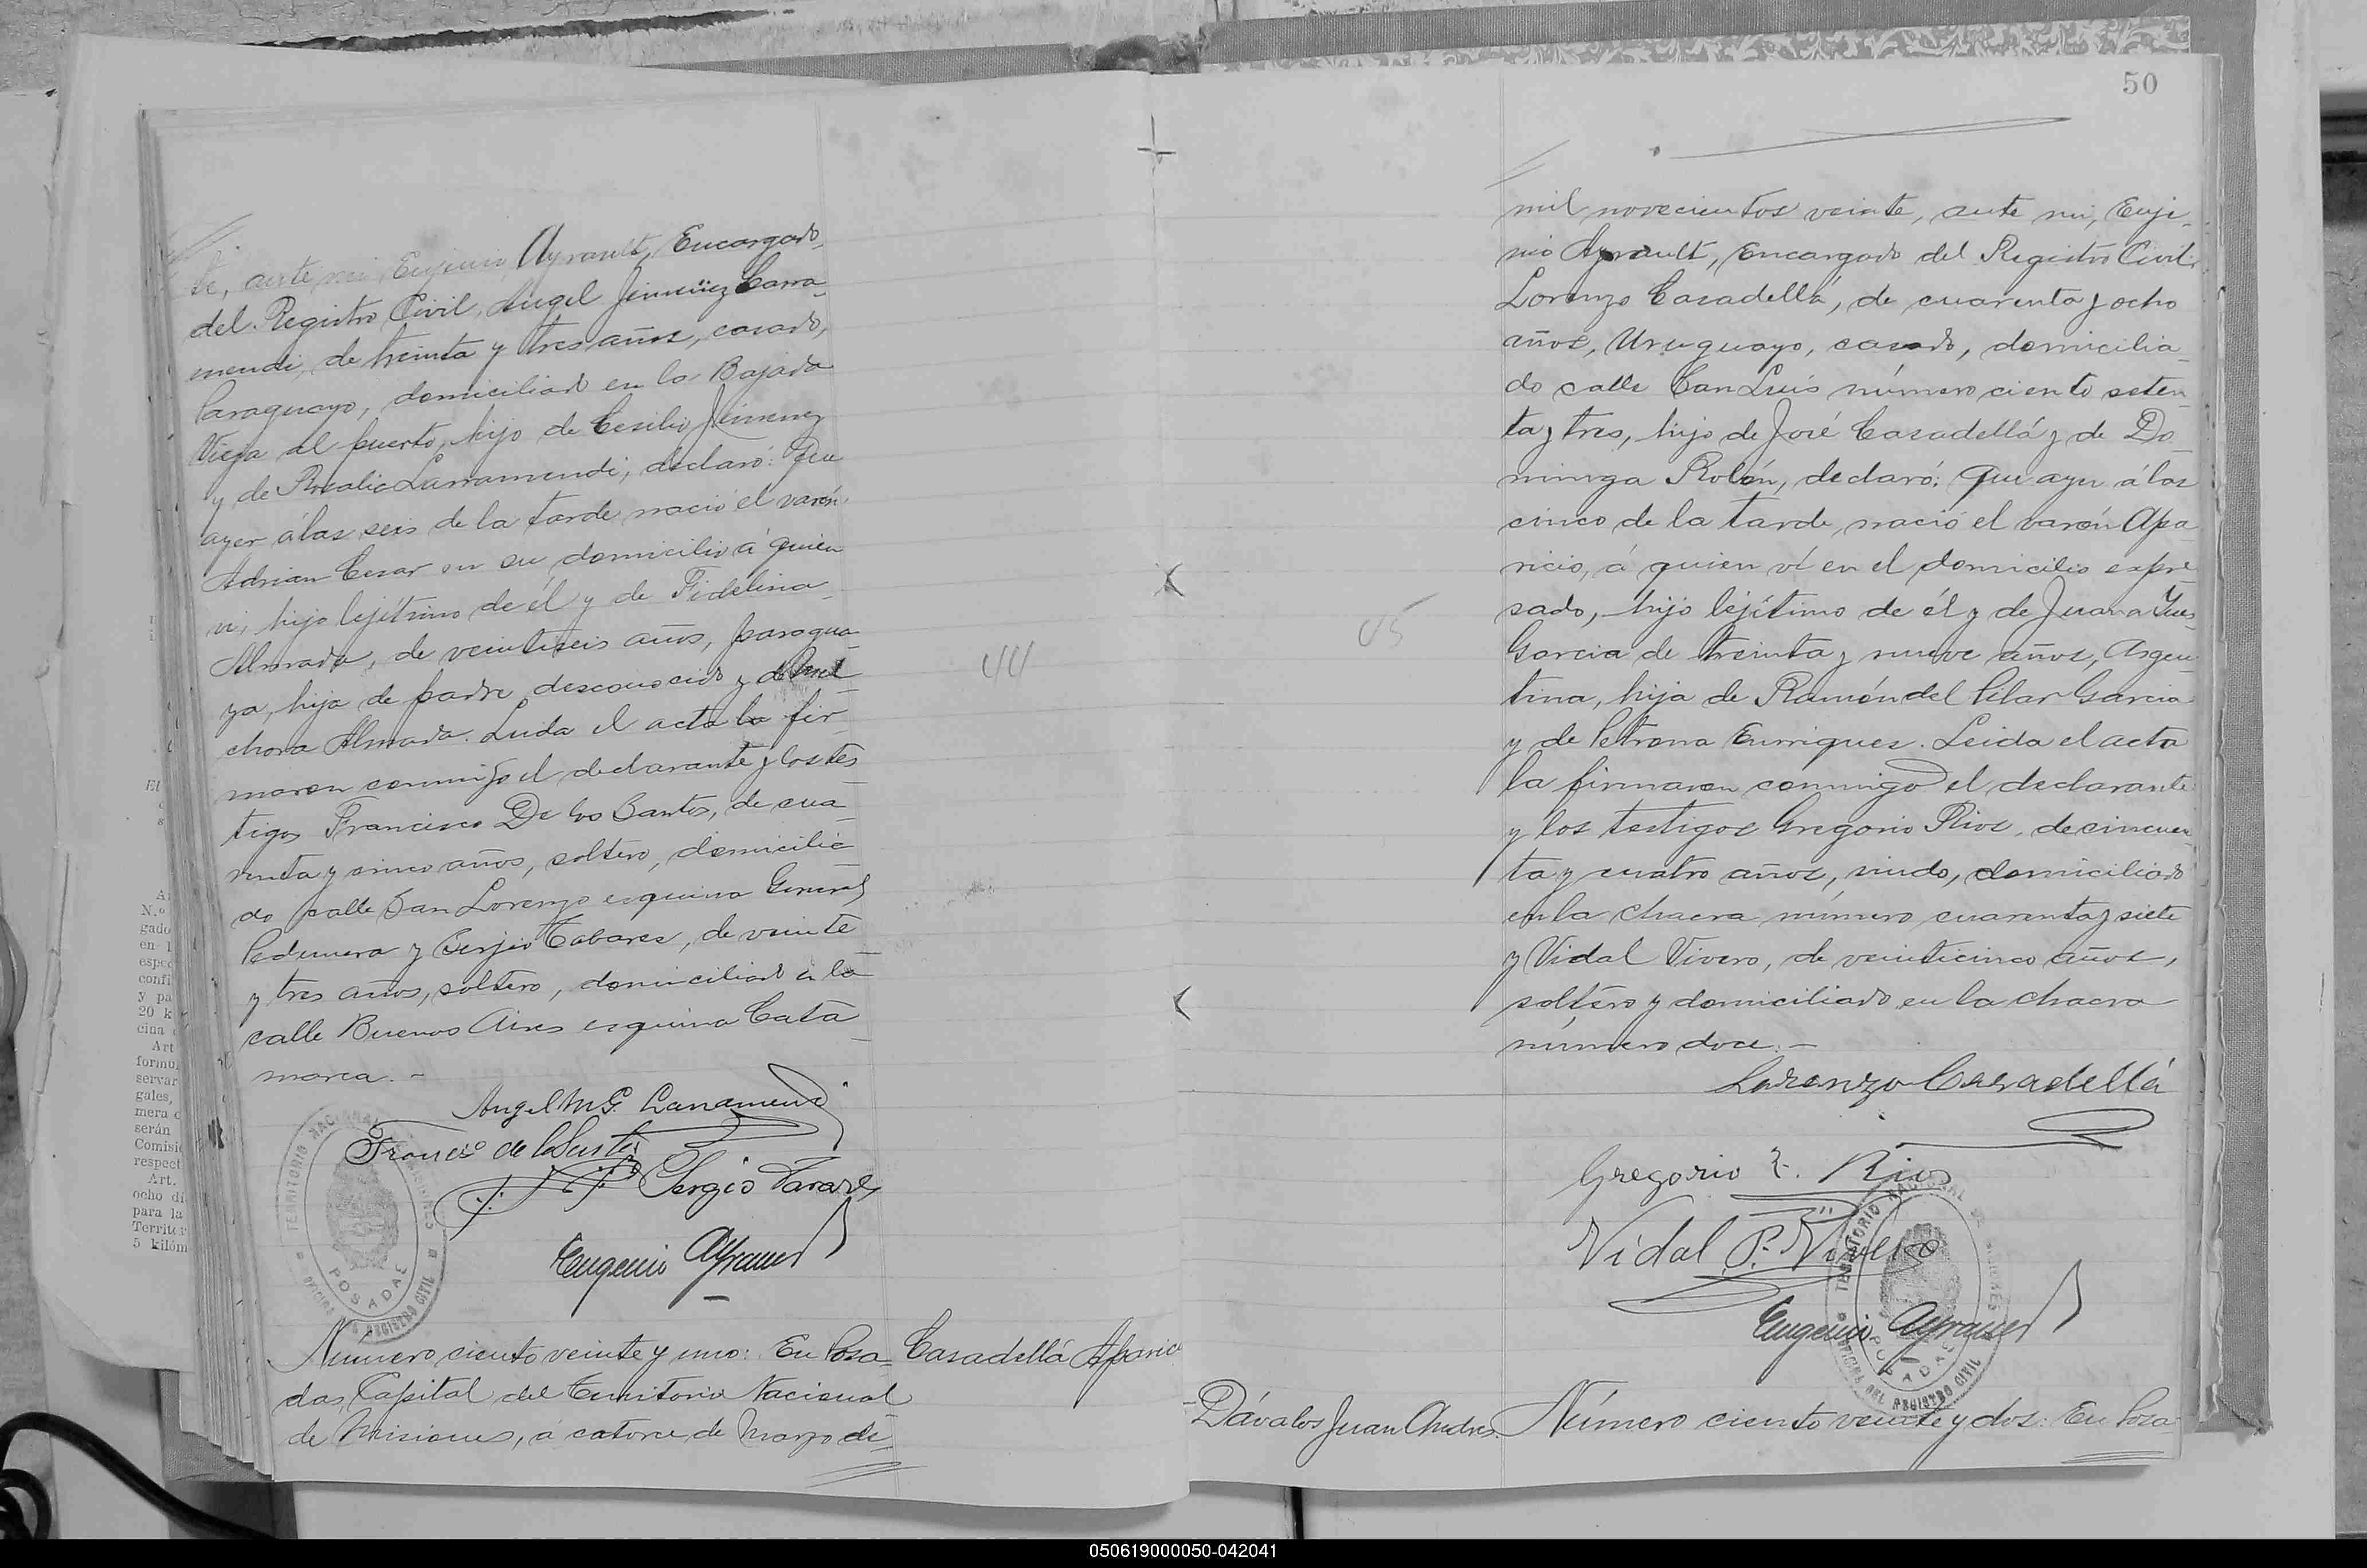 te, ante mi, Eujenio Ayrault, Encargado
del Registro Civil, Angel Jimenez Larra
mendi, de treinta y tres años, casado,
Paraguayo, domiciliado en la Bajada
Vieja al puerto, hijo de Cesilio Jimenez
y de Rosalia Larramendi, declaró: Que
ayer á las seis de la tarde nació el varón
Adrian Cesar en su domicilio á quien
vi, hijo lejítimo de él y de Fidelina
Almada, de veintiseis años, paragua
ya, hija de padre desconocido y de Mel
chora Almada. Leida el acta la fir
maron conmigo el declarante y los tes
tigos Francisco De los Santos, de cua
renta y cinco años, soltero, domicilia
do calle San Lorenzo esquina General
Pedernera y Serjio Tabares, de veinte
y tres años, soltero, domiciliado en la
calle Buenos Aires esquina Cata
marca. -
Angel M G. Larramendi
Francsco de los Santos
Sergio Tavares
Eugenio Ayrault
TERRITORIO NACIONAL DE MISIONES
POSADAS
OFICINA DEL REGISTRO CIVIL
Número ciento veinte y uno: En Posa
das, Capital del Territorio Nacional
de Misiones, á catorce de Marzo de
Casadellá Aparicio
44
50
mil novecientos veinte, ante mi, Euje
nio Ayrault, Encargado del Registro Civil
Lorenzo Casadellá, de cuarenta y ocho
años, Uruguayo, casado, domicilia
do calle San Luis número ciento seten
ta y tres, hijo de José Casadellá y de Do
minga Rolón, declaró: Que ayer á las
cinco de la tarde nació el varón Apa
ricio, á quien ví en el domicilio expre
sado, hijo lejítimo de él y de Juana Ines
Garcia de treinta y nueve años, Argen
tina, hija de Ramón del Pilar Garcia
y de Petrona Enrriques. Leida el acta
la firmaron conmigo el declarante
y los testigos Gregorio Rios, de cincuen
ta y cuatro años, viudo, domiciliado
en la chacra número cuarenta y siete
y Vidal Vivero, de veinticinco años,
soltero y domiciliado en la chacra
número doce. -
45
Lorenzo Casadellá
Gregorio Z. Rios
Vidal P. Vivero
Eugenio Ayrault
TERRITORIO NACIONAL DE MISIONES
POSADAS
OFICINA DEL REGISTRO CIVIL
Dávalos Juan Andres.
Número ciento veinte y dos: En Posa
El
Art
N.º
gado
en l
espec
confi
y pa
20 k
cina
Art
formu
servar
gales,
mera
serán
Comisi
respect
Art.
ocho di
para la
Territor
5 kilóm
050619000050-042041